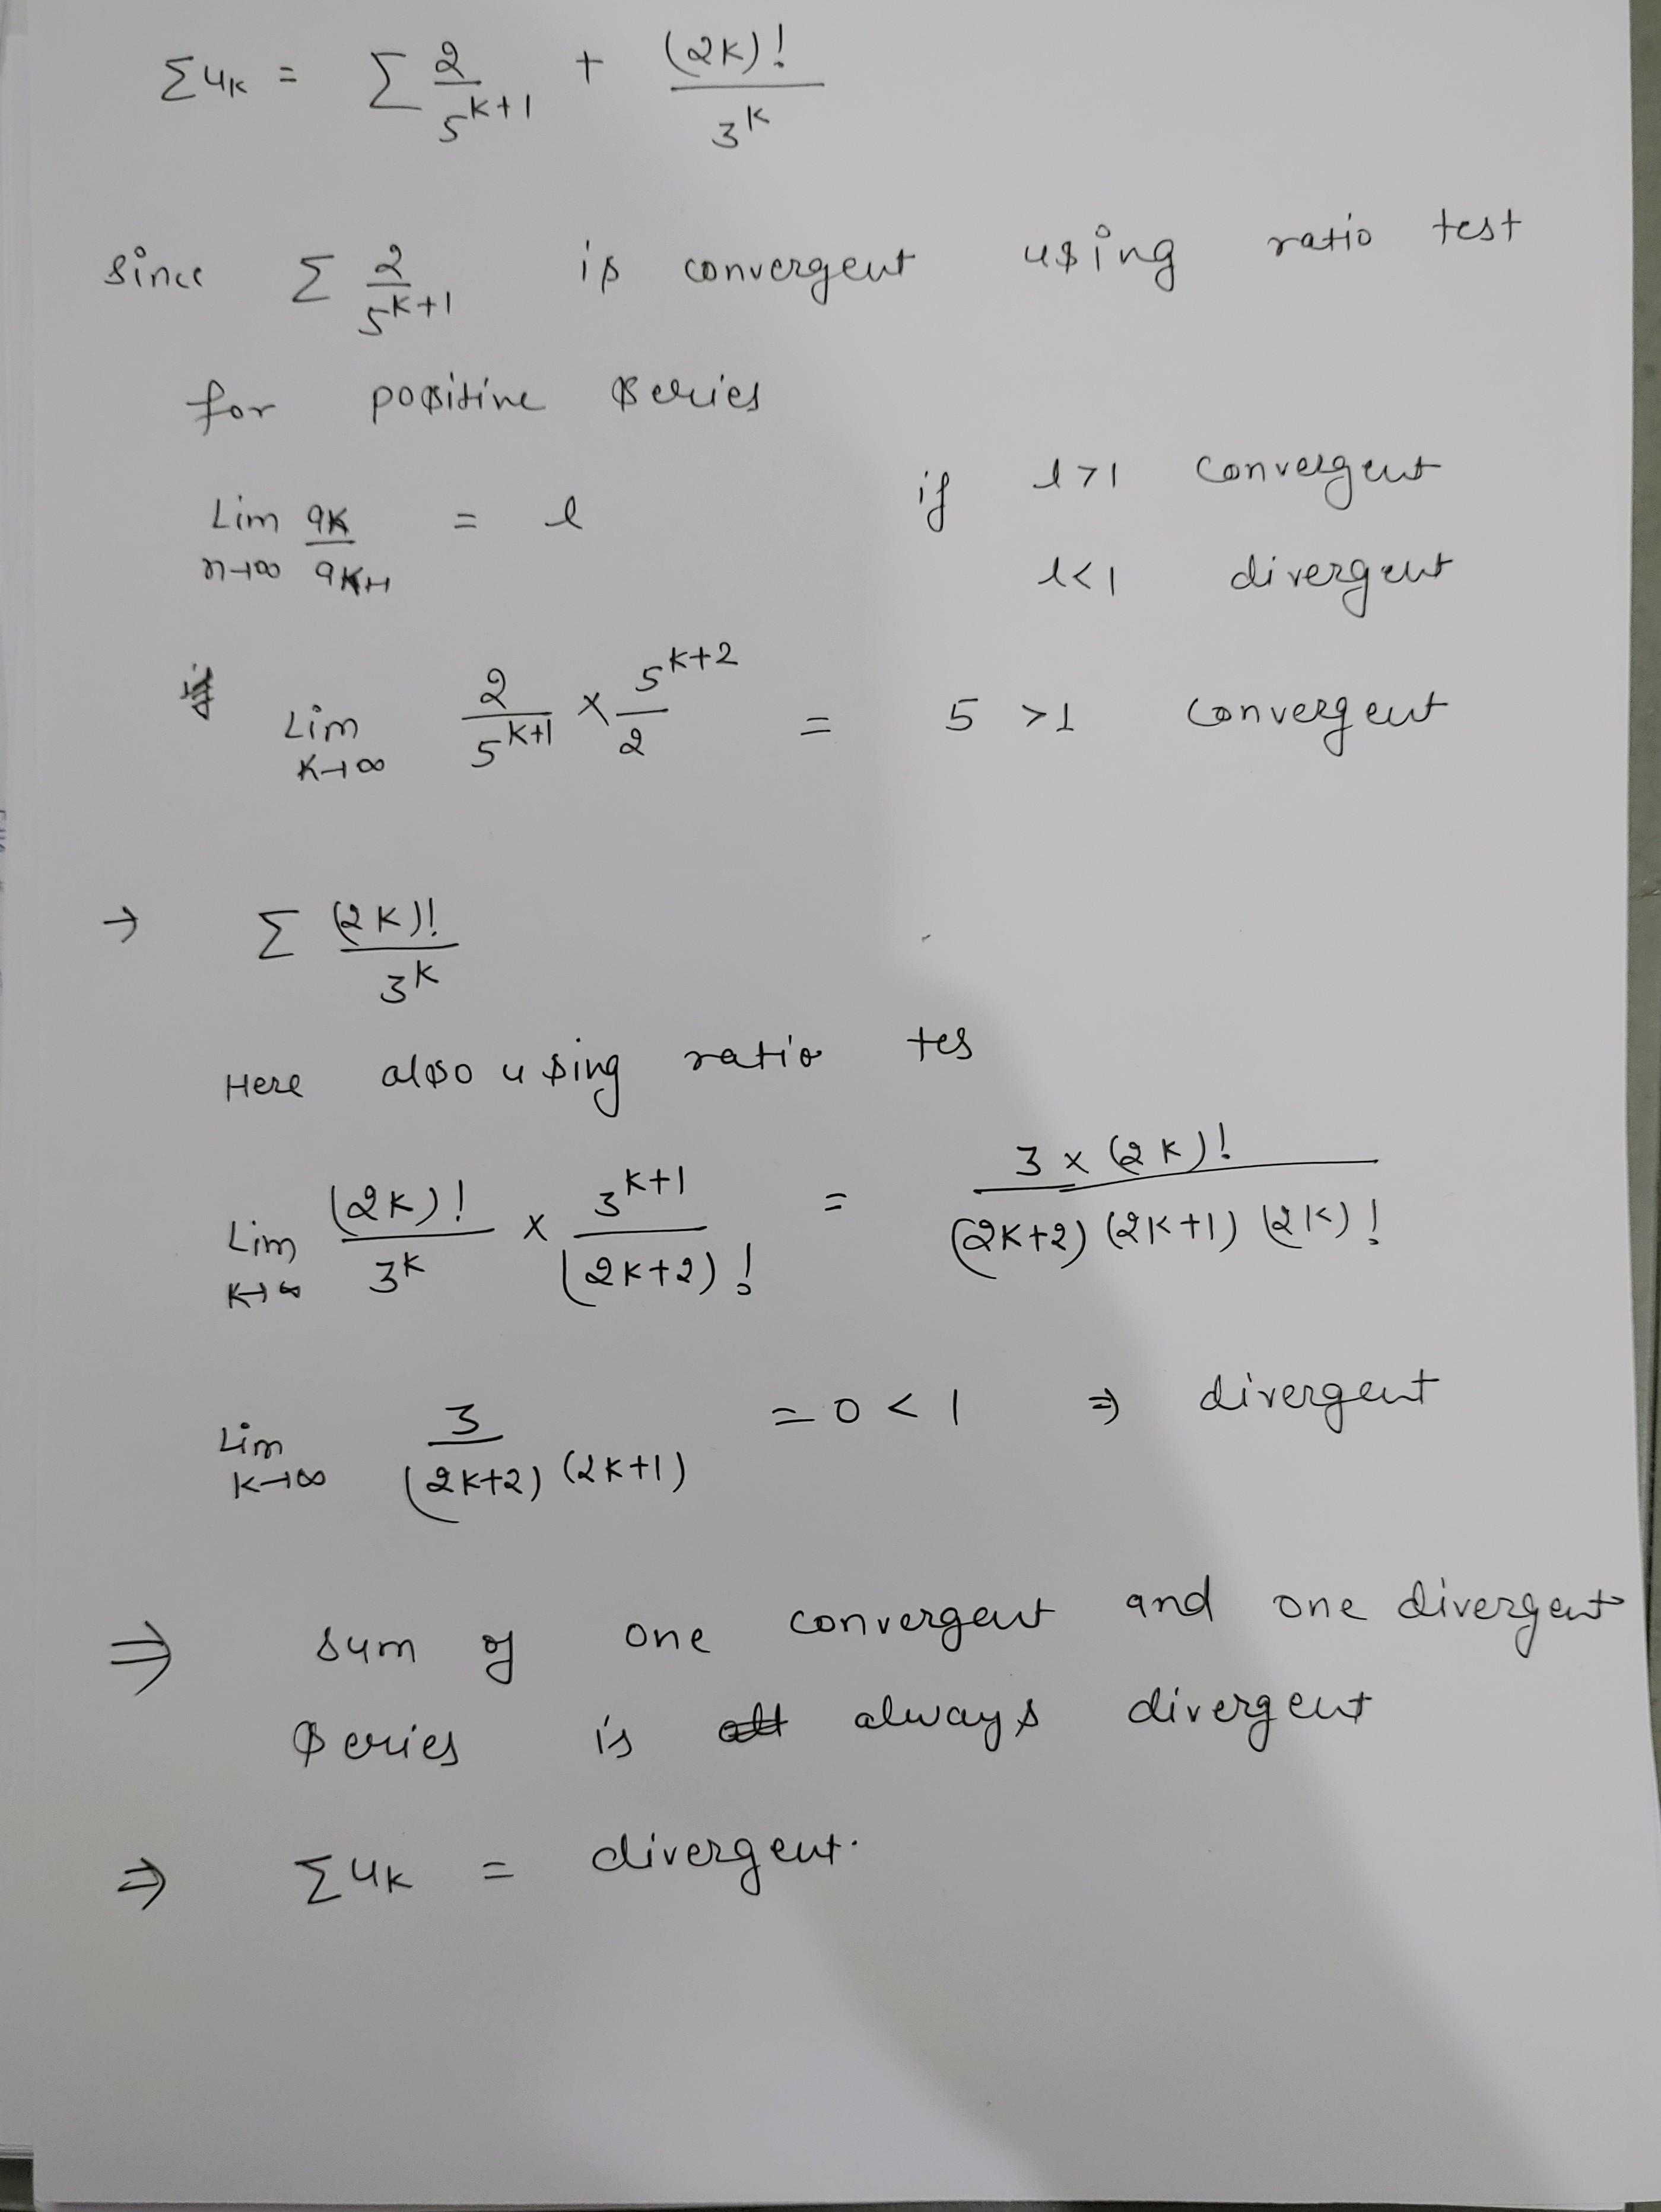 Σuk = Σ 2/5^k+1 + (2k)!/3^k
since Σ 2/5^k+1 is convergent using ratio test
for positive series
Lim n→∞ ak/ak+1 = l if l>1 convergent
l<1 divergent
Lim k→∞ 2/5^k+1 × 5^k+2/2 = 5 >1 convergent
→ Σ (2k)!/3^k
Here also using ratio tes
Lim k→∞ (2k)!/3^k × 3^k+1/(2k+2)! = 3×(2k)!/(2k+2)(2k+1)(2k)!
Lim k→∞ 3/(2k+2)(2k+1) = 0 < 1 ⇒ divergent
⇒ sum of one convergent and one divergent
series is always divergent
⇒ Σuk = divergent.